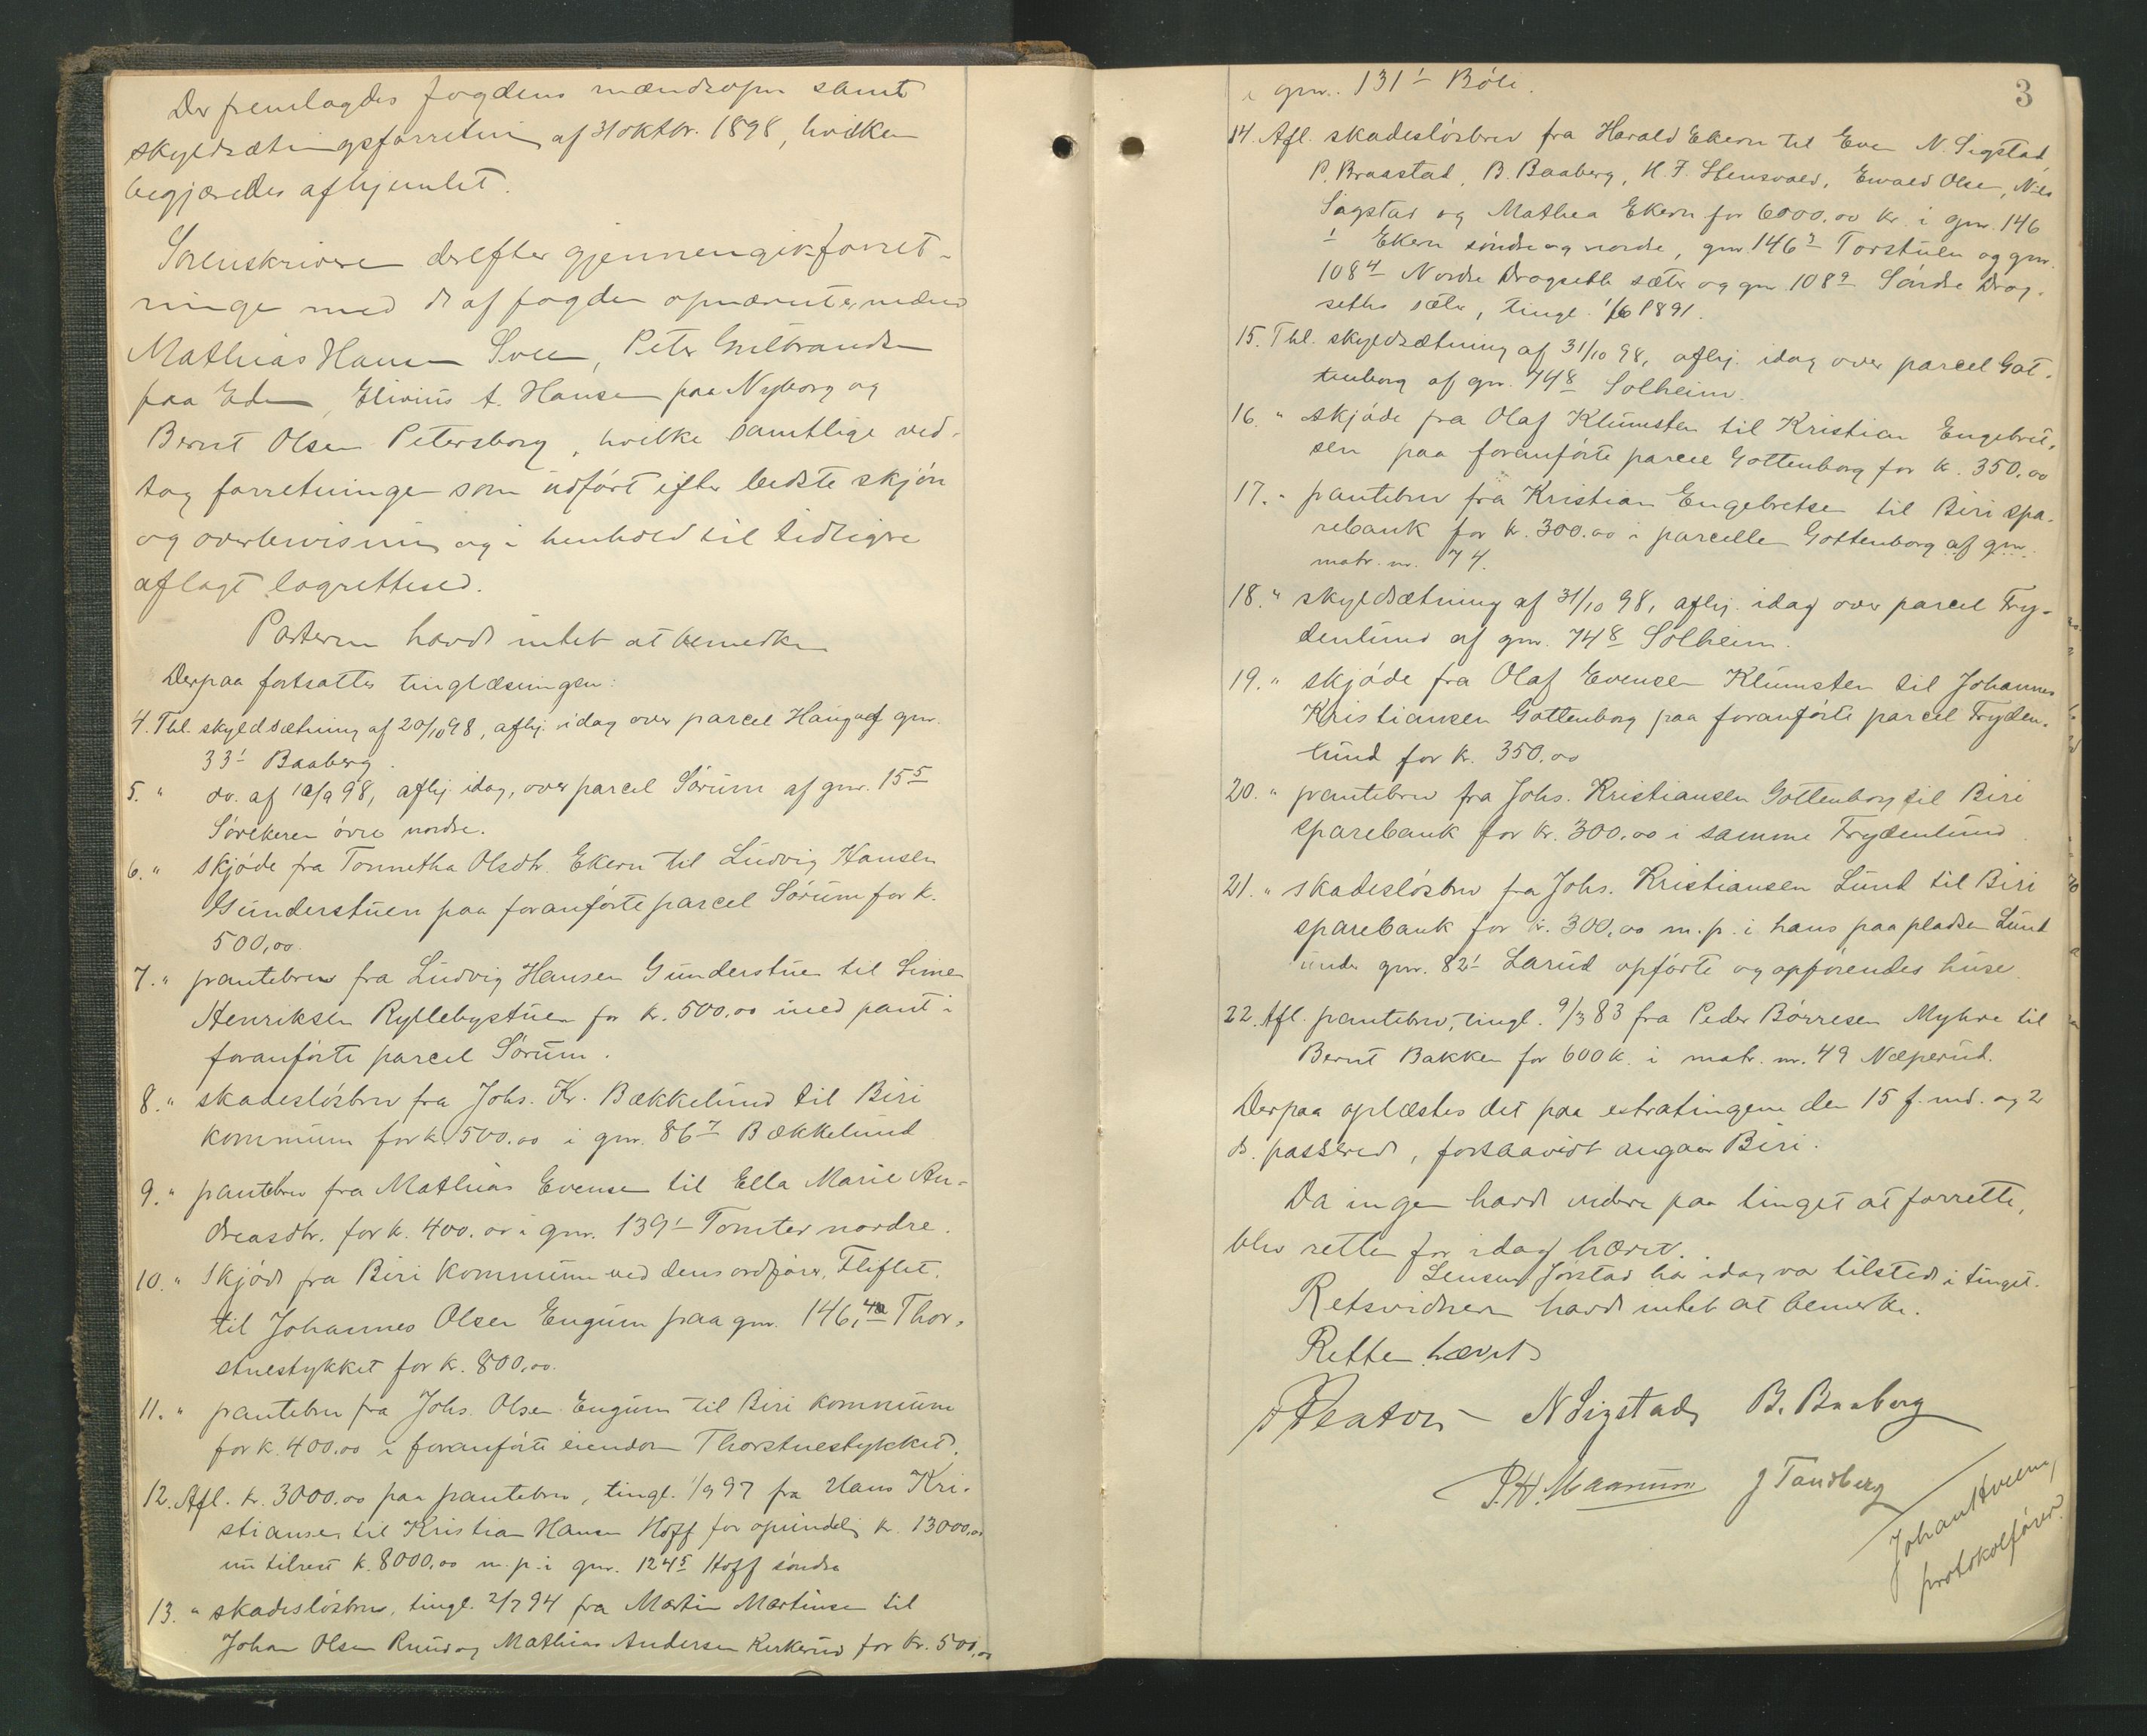 Der fremlagdes fogdens mændsopn samt
skyldsætningsforretnin af 31 oktbr. 1898, hvilken
begjæredes afhjemlet.
Sorenskriveren derefter gjennemgik forret-
ningen med de af fogden opnævnte mænd
Mathias Hansen Sveen, Peter Gulbrandsen
paa Eden, Elivius A. Hansen paa Nyborg og
Bernt Olsen Petersborg, hvilke samtlige ved-
tog forretningen som udført efter bedste skjøn
og overbevisning og i henhold til tidligere
aflagt lagrettesed.
Parterne havde intet at bemerke
Derpaa fortsattes tinglæsningen:
4. Thl. skyldsætning af 20/10 98, afhj. idag over parcel Haug af gnr.
33¹ Baaberg.
5. " do. af 10/9 98, afhj. idag, over parcel Sørum af gnr. 15⁵
Sørekeren øvre nordre.
6. " skjøde fra Tonnetha Olsdtr. Ekern til Ludvig Hansen
Gunderstuen paa foranførte parcel Sørum for k.
500,00.
7. " pantebrev fra Ludvig Hansen Gunderstuen til Simen
Henriksen Ryllebystuen for kr. 500.00 med pant i
foranførte parcel Sørum.
8. " skadesløsbrev fra Johs. Kr. Bækkelund til Biri
kommune for kr. 500.00 i gnr. 86⁷ Bækkelund
9. " pantebrev fra Mathias Evensen til Ella Marie An-
dreasdtr. for kr. 400.00 i gnr. 139¹ Tomter nordre.
10. " Skjøde fra Biri kommune ved dens ordfører, Fliflet.
til Johannes Olsen Engum paa gnr. 146,⁴⁰ Thor-
stuestykket for kr. 800,00.
11. " pantebrev fra Johs. Olsen Engum til Biri kommune
for kr. 400.00 i foranførte eiendom Thorstuestykket.
12. Afl. kr. 3000.00 paa pantebrev, tingl. 1/9 97 fra Hans Kri-
stiansen til Kristian Hansen Hoff for oprindelig kr. 13000,00
nu tilrest k. 8000,00 m. p. i gnr. 124⁵ Hoff søndre
13. " skadesløsbrev, tingl. 2/7 94 fra Martin Martinsen til
Johan Olsen Ruud og Mathias Andersen Kirkerud for kr. 500,00
3
i gnr. 131¹ Bøle.
14. Afl. skadesløsbrev fra Harald Ekern til Even N. Sigstad,
P. Braastad, B. Baaberg, H. F. Stensvold, Evald Olsen, Nils
Sigstad og Mathea Ekern for 6000,00 kr. i gnr. 146
¹ Ekern søndre og nordre, gnr. 146³ Torstuen og gnr.
108⁴ Nordre Dragseth sæter og gnr. 108⁹ Søndre Drag-
seths sæter, tingl. 1/6 1891.
15. Thl. skyldsætning af 31/10 98, afhj. idag over parcel Got-
tenborg af gnr. 74⁸ Solheim.
16. " skjøde fra Olaf Klumsten til Kristian Engebret-
sen paa foranførte parcel Gottenborg for k. 350,00
17. " pantebrev fra Kristian Engebretsen til Biri spa-
rebank for kr. 300.00 i parcellen Gottenborg af gnr.
matr. nr. 74.
18. " skyldsætning af 31/10 98, afhj. idag over parcel Fry-
denlund af gnr. 74⁸ Solheim.
19. " skjøde fra Olaf Evensen Klumsten til Johannes
Kristiansen Gottenborg paa foranførte parcel Fryden-
lund for kr. 350.00
20. " pantebrev fra Johs. Kristiansen Gottenborg til Biri
sparebank for kr. 300,00 i samme Frydenlund
21. " skadesløsbrev fra Johs. Kristiansen Lund til Biri
sparebank for kr. 300,00 m. p. i hans paa pladsen Lund
under gnr. 82¹ Larud opførte og opførendes huse.
22. Afl. pantebrev, tingl. 9/3 83 fra Peder Børresen Myhre til
Bernt Bakken for 600 k. i matr. nr. 49 Næperud.
Derpaa oplæstes det paa extratingene den 15 f. md. og 2
ds. passerede, forsaavidt angaar Biri.
Da ingen havde videre paa tinget at forrette,
blev retten for idag hævet.
Lensm. Jørstad har idag vær tilstede i tinget.
Retsvidnerne havde intet at bemerke.
Retten hævet
N Sigstad B. Baaberg
J Tandberg
Johan Hveem,
protokolfører.